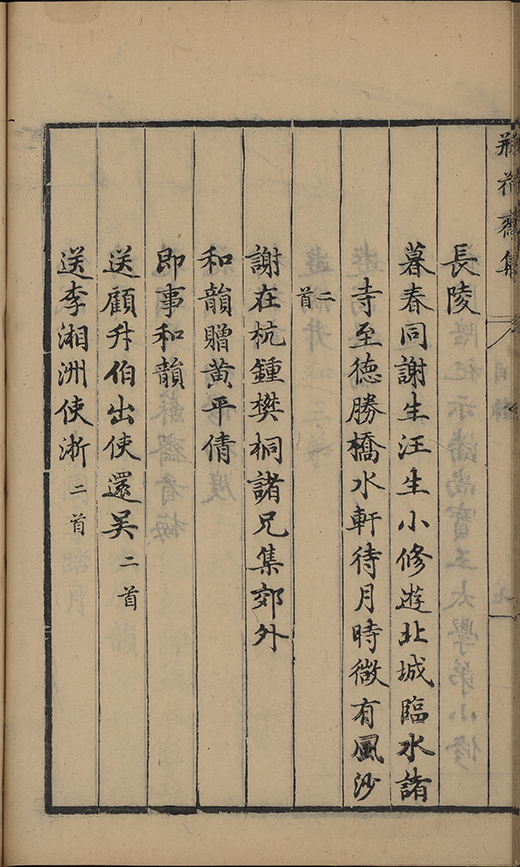 瓶花齋集
目錄
長陵
暮春同謝生汪生小修遊北城臨水諸
寺至德勝橋水軒待月時微有風沙
二首
謝在杭鍾樊桐諸兄集郊外
和韻贈黃平倩
即事和韻
送顧升伯出使還吳二首
送李湘洲使浙二首